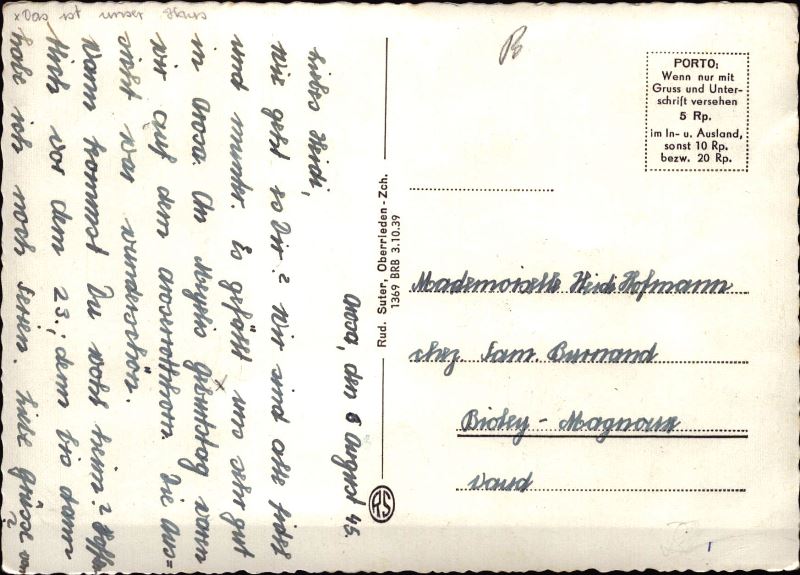 x Das ist unser Haus
Arosa, den 8 August 45.
Liebes Heidi,
Wie geht es Dir? Wir sind alle fein
und munter. Es gefällt x uns sehr gut
in Arosa. An Geburtstag waren
wir auf dem Aroserrothorn. Die Aus=
sicht war wunderschön.
Wann kommst Du wohl heim?
vor dem 23.; denn bis dann
habe ich noch Ferien. Liebe Grüsse
B
PORTO:
Wenn nur mit
Gruss und Unter-
schrift versehen
5 Rp.
im In- u. Ausland,
sonst 10 Rp.
bezw. 20 Rp.
Rud. Suter, Oberrieden - Zch.
1369 BRB 3.10.39
RS
Mademoiselle Heidi Hofmann
chez. Fam. Burnand
Bioley - Magnoux
Vaud